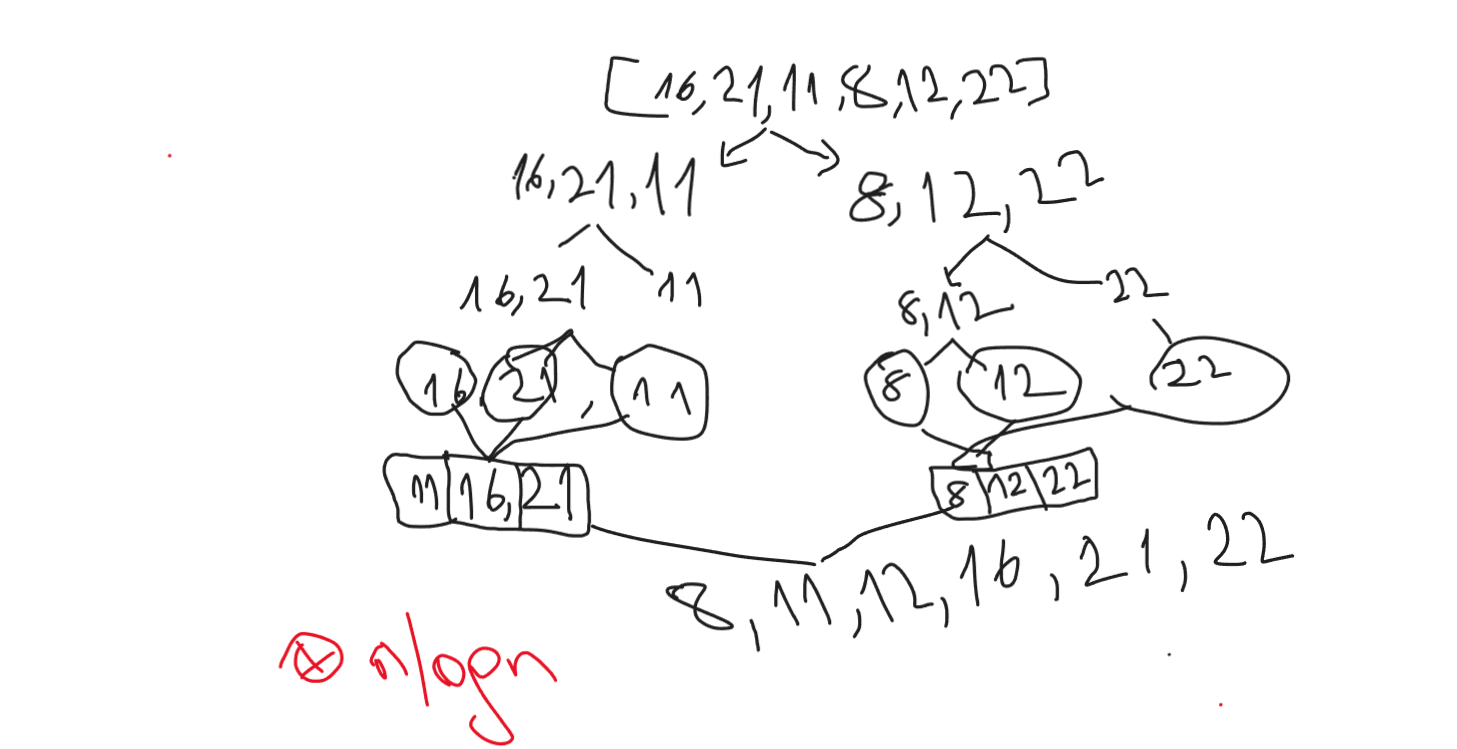 [16,21,11,8,12,22]
16,21,11 8,12,22
16,21 11 8,12 22
16 21 , 11 8 12 22
11 16, 21 8 12 22
8,11,12,16,21,22
nlogn